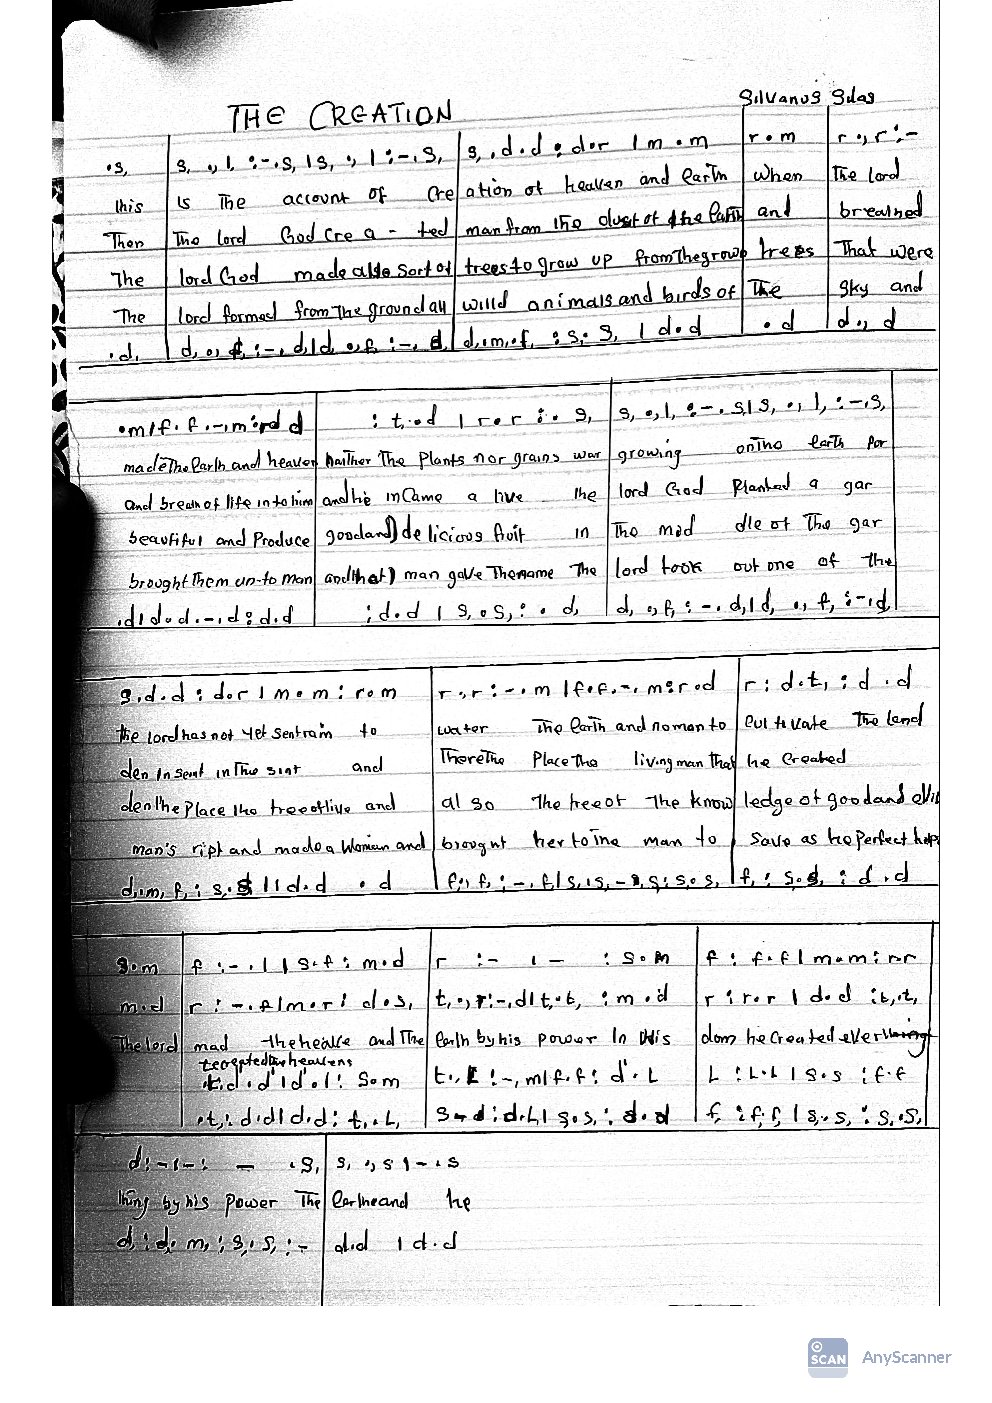 Silvanus Silas
THE CREATION
.s, | s, .,l, :-.s, |s, ., l :-.s, | s, .d.d : d.r | m.m | r.m | r.,r:-
This | is The account of Cre | ation of heaven and Earth | when | The lord
Then | The lord God cre a - ted | man from the dust of the Earth | and | breathed
The | lord God made all sort of | trees to grow up from The grow | trees | That were
The | lord formed from The ground all | willd animals and birds of | The | sky and
.d, | d, ., f, :-, d, |d, ., f, :-, d, | d, .m, .f, : s, . s, | d.d | .d | d., d
.m | f.f.-,m:r.d | : t, .d | r.r : . s, | s, ., l, :-.s, |s, ., l, :-.s,
made The Earth and heaven | Neither The Plants nor grains war | growing on The earth For
and breath of life into him | and he inCame a live the | lord God Planted a gar
beautiful and Produce | good and delicious fruit in | The mid dle of The gar
brought Them un-to man | and (that) man gave The name The | lord took out one of the
.d | d.d.-,d:d.d | : d.d | s, .s, : . d, | d, ., f, :-.d, |d, ., f, :-.d,
s, .d.d : d.r | m.m : r.m | r.,r:-.m | f.f.-,m:r.d | r : d.t, : d.d
the lord has not yet sent rain to | water The Earth and no man to | cul ti vate The land
den In sent in The sint and | There The Place The living man that | he Created
den The Place The tree of live and | al so The tree of The know | ledge of good and evil
man's ript and made a Woman and | brought her to The man to | Save as he Perfect help
d, .m, .f, : s, .s, | d.d .d | f,., f, :-.f, | s, .s, -.s, : s, .s, | f, : s, .s, : d.d
s.m | f :-.l | s.f : m.d | r :- | - : s.m | f : f.f | m.m : r.r
m.d | r :-.f | m.r : d.s, | t, ., r:-.d | t, .t, : m.d | r : r.r | d.d : t, .t,
The lord | mad the heave and The | Earth by his power In His | dom he Created ever
created the heavens
.t : d'.d' | d'.l : s.m | t. L :-, m | f.f : d'.L | L : L.L | s.s : f.f
.t, : d.d | d.d : t, .L, | s - d : d.L | s, .s, : d.d | f, : f, .f, | s, .s, : s, .s,
d:- | - : - .s, | s, .,s | - .s
thing by his power The | Earth and he
d, : d, .m, : s, .s, :- | d.d | d.d
SCAN AnyScanner